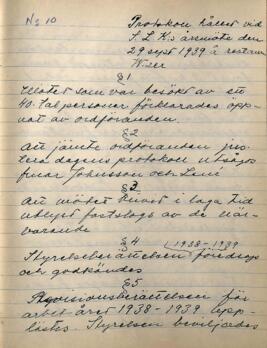 No 10
Protokoll hållet vid
S.L.K:s årsmöte den
29 sept 1939 å restau
§1
Mötet som var besökt av ett
40-tal personer förklarades öpp-
nat av ordföranden.
§2
Att jämte ordföranden jus-
tera dagens protokoll utsågs
Johnsson och
§3
Att mötet blivit i laga tid
utlyst fastslogs av de när-
varande
§4
1938-1939
Styrelseberättelsen föredrogs
och godkändes
§5
Revisionsberättelsen för
arbetsåret 1938-1939 upp-
lästes. Styrelsen beviljades